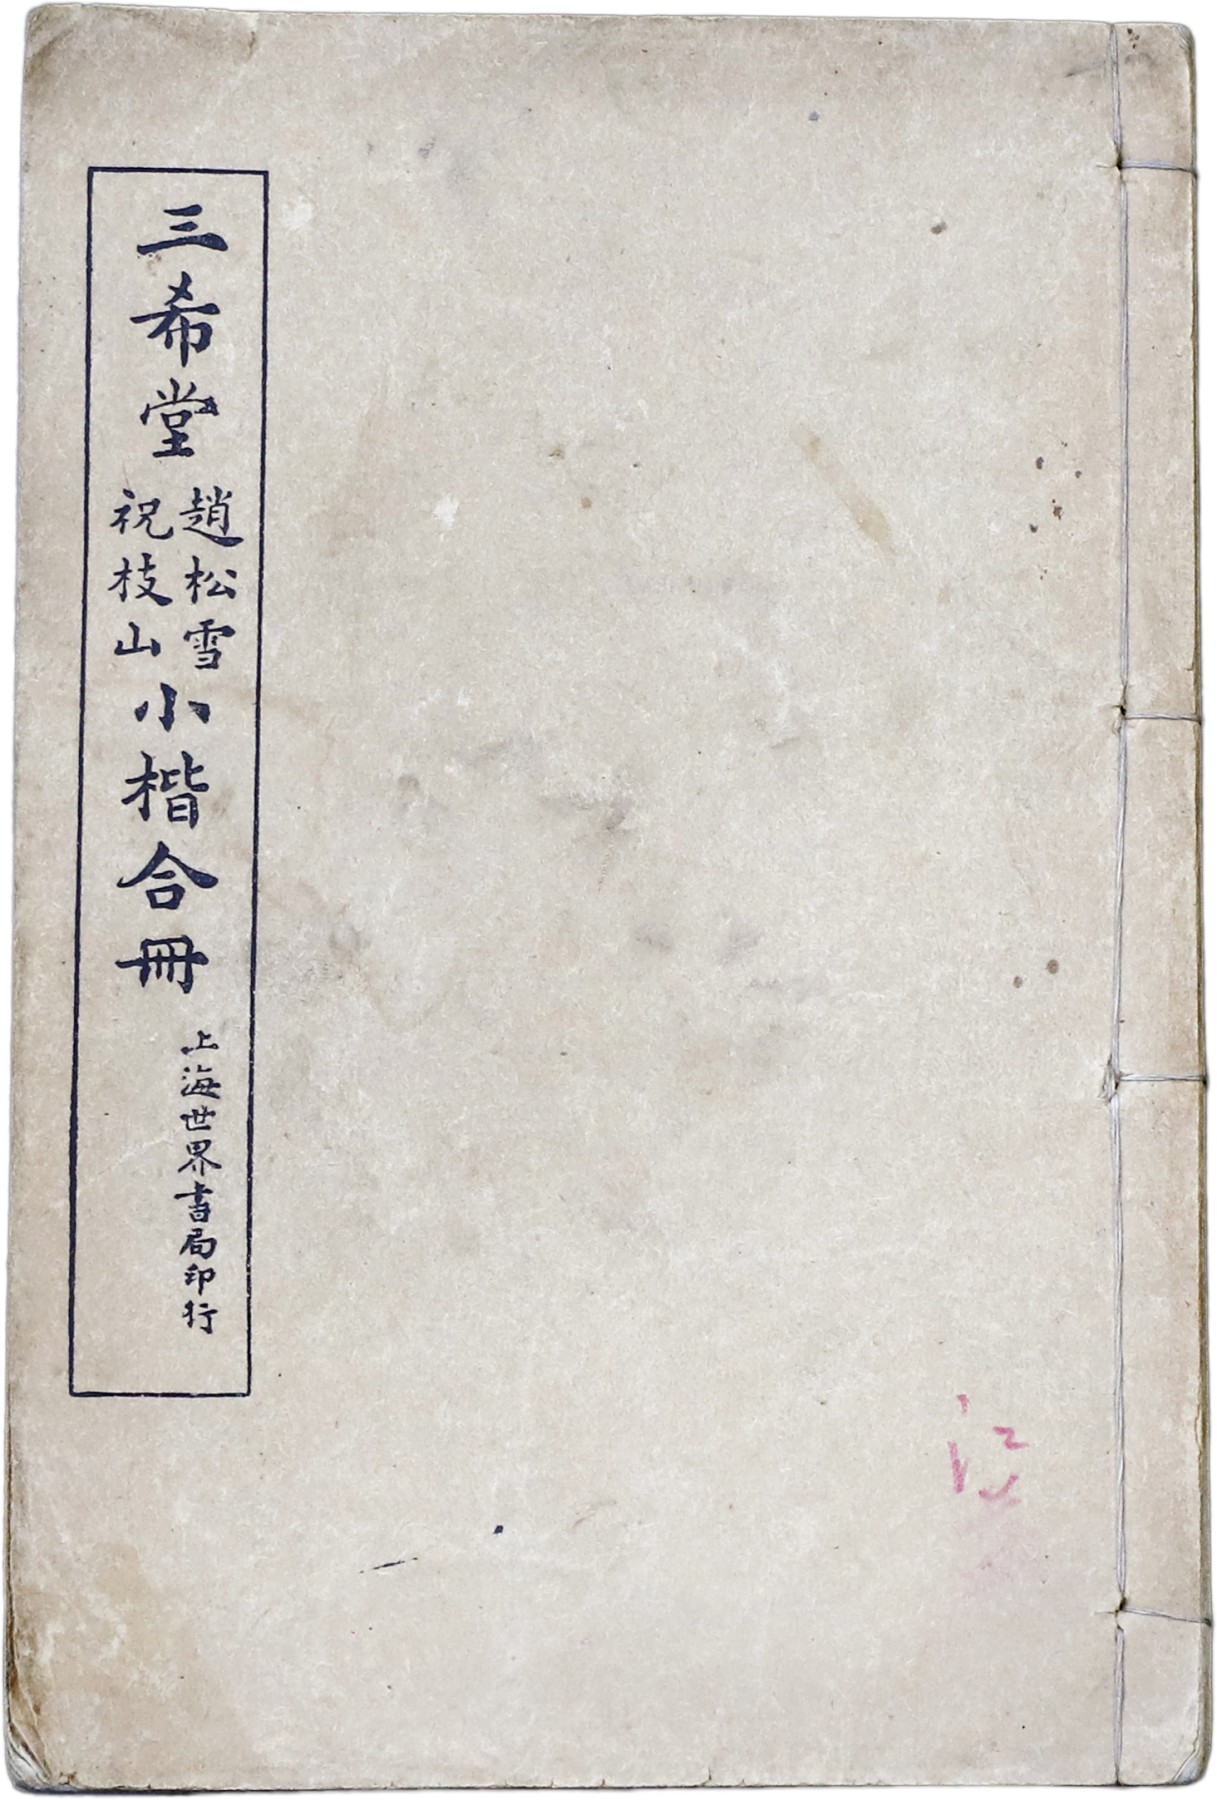 三希堂
趙松雪
祝枝山
小楷合冊
上海世界書局印行